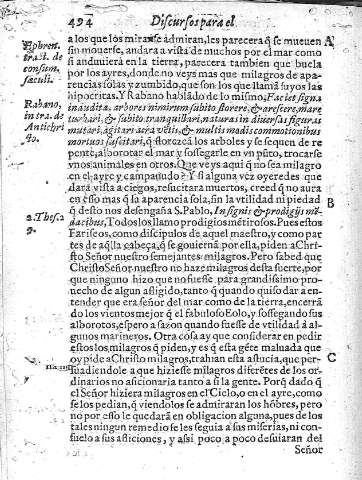 494 Discursos para el
a los que los mirasẽ admiran, les parecera q̃ se mueuen
sin mouerse, andara a vista de muchos por el mar como
si anduuiera en la tierra, parecera tambien que buela
por los ayres, donde no veys mas que milagros de apa-
rencias solas y zumbido, que son los que llama suyos las
hipocritas. Y Rabano hablãdo de lo mismo, Faciet signa
inaudita, arbores nimirum subito florere, & crescere, mare
turbari, & subito tranquillari, naturas in diuersas figuras
mutari, agitari aera vẽtis, & multis modis commotionibus
mortuos suscitari, q̃ florezcã los arboles y se sequen de re
pente, alborotar el mar y sossegarle en vn pũto, trocarse
vnos animales en otros. Que veys aqui q̃ no sea milagro
en el ayre y campanudo? Y si alguna vez oyeredes que
dara vista a ciegos, resucitara muertos, creed q̃ no aura
en esso mas q̃ la aparencia sola, sin la vtilidad ni piedad
q̃ desto nos desengaña S. Pablo, In signis & prodigijs mẽ-
dacibus, Todos los llamo prodigios mẽtirosos. Pues estos
Fariseos, como discipulos de aquel maestro, y como par
tes de aq̃lla cabeça, q̃ se gouiernã por ella, piden a Chri-
sto Señor nuestro semejantes milagros. Pero sabed que
Christo Señor nuestro no haze milagros desta suerte, por
que ninguno hizo que no fuesse para grandissimo pro-
uecho de algun afligido, tanto q̃ quando quiso dar a en-
tender que era señor del mar como de la tierra, encerrã
do los vientos mejor q̃ el fabuloso Eolo, y sossegando sus
alborotos, espero a sazon quando fuesse de vtilidad a al-
gunos marineros. Otra cosa ay que considerar en pedir
estos los milagros q̃ piden, y es q̃ esta gẽte maluada que
oy pide a Christo milagros, trahian esta astucia, que per-
suadiendole a que hiziesse milagros diferẽtes de los or-
dinarios no aficionaria tanto a si la gente. Porq̃ dado q̃
el Señor hiziera milagros en el Cielo, o en el ayre, como
se los pedian, q̃ viendolos se admiraran los hõbres, pero
no por esso le quedarã en obligacion alguna, pues de los
tales ningun remedio se les seguia a sus miserias, ni con-
suelo a sus aficiones, y assi poco a poco desuiaran del
Señor
Ephren.
tract. de
consum.
sæculi.
Rabano,
in tra. de
Antichri
sto.
2. Thess
2.
A
B
C